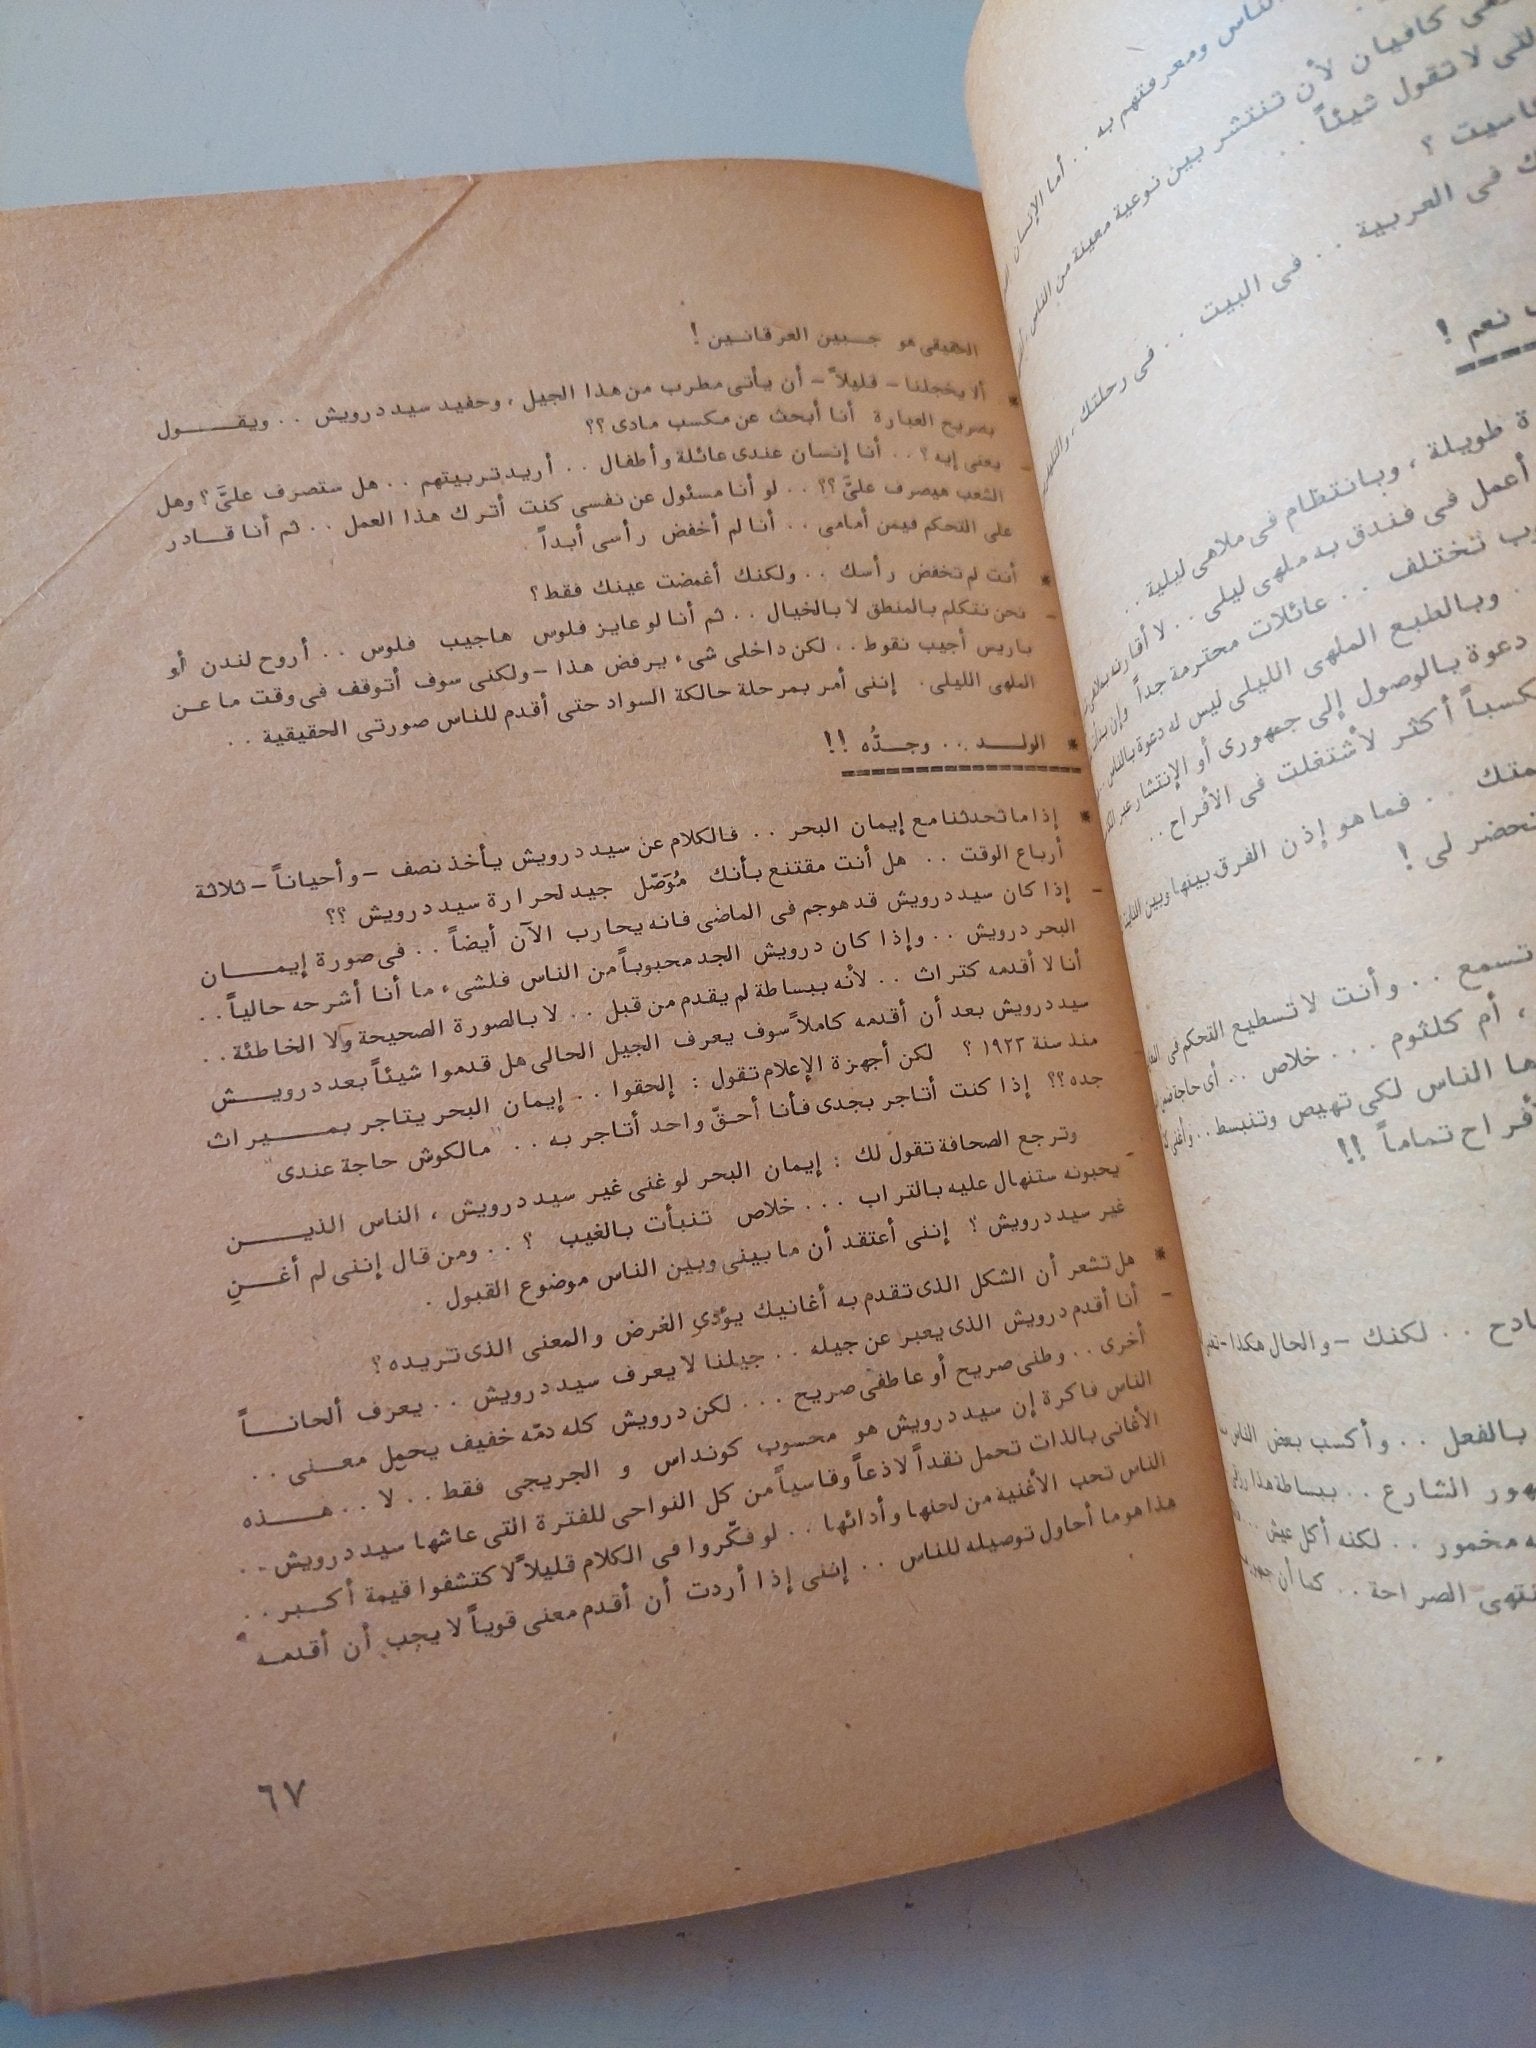 الحقيقى هو جبين العرقانين !
* ألا يخجلنا - قليلاً - أن يأتى مطرب من هذا الجيل ، وحفيد سيد درويش . . ويقول
بصريح العبارة أنا أبحث عن مكسب مادى ؟؟
- يعنى إيه ؟ . . أنا إنسان عندى عائلة وأطفال . . أريد تربيتهم . . هل ستصرف علىَّ ؟ وهل
الشعب هيصرف علىَّ ؟؟ . . لو أنا مسئول عن نفسى كنت أترك هذا العمل . . ثم أنا قادر
على التحكم فيمن أمامى . . أنا لم أخفض رأسى أبداً .
* أنت لم تخفض رأسك . . ولكنك أغمضت عينك فقط ؟
- نحن نتكلم بالمنطق لا بالخيال . . ثم أنا لو عايز فلوس هاجيب فلوس . . أروح لندن أو
باريس أجيب نقوط . . لكن داخلى شىء يرفض هذا - ولكنى سوف أتوقف فى وقت ما عن
الملهى الليلى . إننى أمر بمرحلة حالكة السواد حتى أقدم للناس صورتى الحقيقية . .
* الولد . . وجدُّه !!
* إذا ما تحدثنا مع إيمان البحر . . فالكلام عن سيد درويش يأخذ نصف - وأحياناً - ثلاثة
أرباع الوقت . . هل أنت مقتنع بأنك مُوَصّل جيد لحرارة سيد درويش ؟؟
- إذا كان سيد درويش قد هوجم فى الماضى فانه يحارب الآن أيضاً . . فى صورة إيمان
البحر درويش . . وإذا كان درويش الجد محبوباً من الناس فلشىء ما أنا أشرحه حالياً . .
أنا لا أقدمه كتراث . . لأنه ببساطة لم يقدم من قبل . . لا بالصورة الصحيحة ولا الخاطئة . .
سيد درويش بعد أن أقدمه كاملاً سوف يعرف الجيل الحالى هل قدموا شيئاً بعد درويش
منذ سنة ١٩٢٣ ؟ لكن أجهزة الإعلام تقول : إلحقوا . . إيمان البحر يتاجر بميراث
جده ؟؟ إذا كنت أتاجر بجدى فأنا أحقّ واحد أتاجر به . . " مالكوش حاجة عندى "
وترجع الصحافة تقول لك : إيمان البحر لو غنى غير سيد درويش ، الناس الذين
يحبونه ستنهال عليه بالتراب . . . خلاص تنبأت بالغيب ؟ . . ومن قال إننى لم أغنِ
غير سيد درويش ؟ إننى أعتقد أن ما بينى وبين الناس موضوع القبول .
* هل تشعر أن الشكل الذى تقدم به أغانيك يؤدى الغرض والمعنى الذى تريده ؟
- أنا أقدم درويش الذى يعبر عن جيله . . جيلنا لا يعرف سيد درويش . . يعرف ألحاناً
أخرى . . وطنى صريح أو عاطفى صريح . . . لكن درويش كله دمّه خفيف يحمل معنى . .
الناس فاكرة إن سيد درويش هو محسوب كونداس و الجريجى فقط . . لا . . هذه
الأغانى بالذات تحمل نقداً لاذعاً وقاسياً من كل النواحى للفترة التى عاشها سيد درويش . .
الناس تحب الأغنية من لحنها وأدائها . . لو فكّروا فى الكلام قليلاً لاكتشفوا قيمة أكبر . .
هذا هو ما أحاول توصيله للناس . . إننى إذا أردت أن أقدم معنى قوياً لا يجب أن أقدمه
٦٧
الناس ومعرفتهم به . . أما الإنسان
كافيان لأن تنتشر بين نوعية معينة من الناس
لا تقول شيئاً . .
؟
فى العربية . . فى البيت . . فى رحلتك
نعم !
طويلة ، وبانتظام فى ملاهى ليلية . .
أعمل فى فندق به ملهى ليلى . . لا أقارنه
تختلف . . عائلات محترمة جداً
. . وبالطبع الملهى الليلى ليس له دعوة بالناس
دعوة بالوصول إلى جمهورى أو الإنتشار عبر
أكثر لأشتغلت فى الأفراح . .
. . فما هو إذن الفرق بينها وبين
تحضر لى !
تسمع . . وأنت لا تسطيع التحكم فى
، أم كلثوم . . . خلاص . . أى حاجة
الناس لكى تهيص وتنبسط . .
تماماً !!
. . لكنك - والحال هكذا -
بالفعل . . وأكسب بعض الناس
الشارع . . ببساطة هذا
مخمور . . لكنه أكل عيش . . .
الصراحة . . كما أن